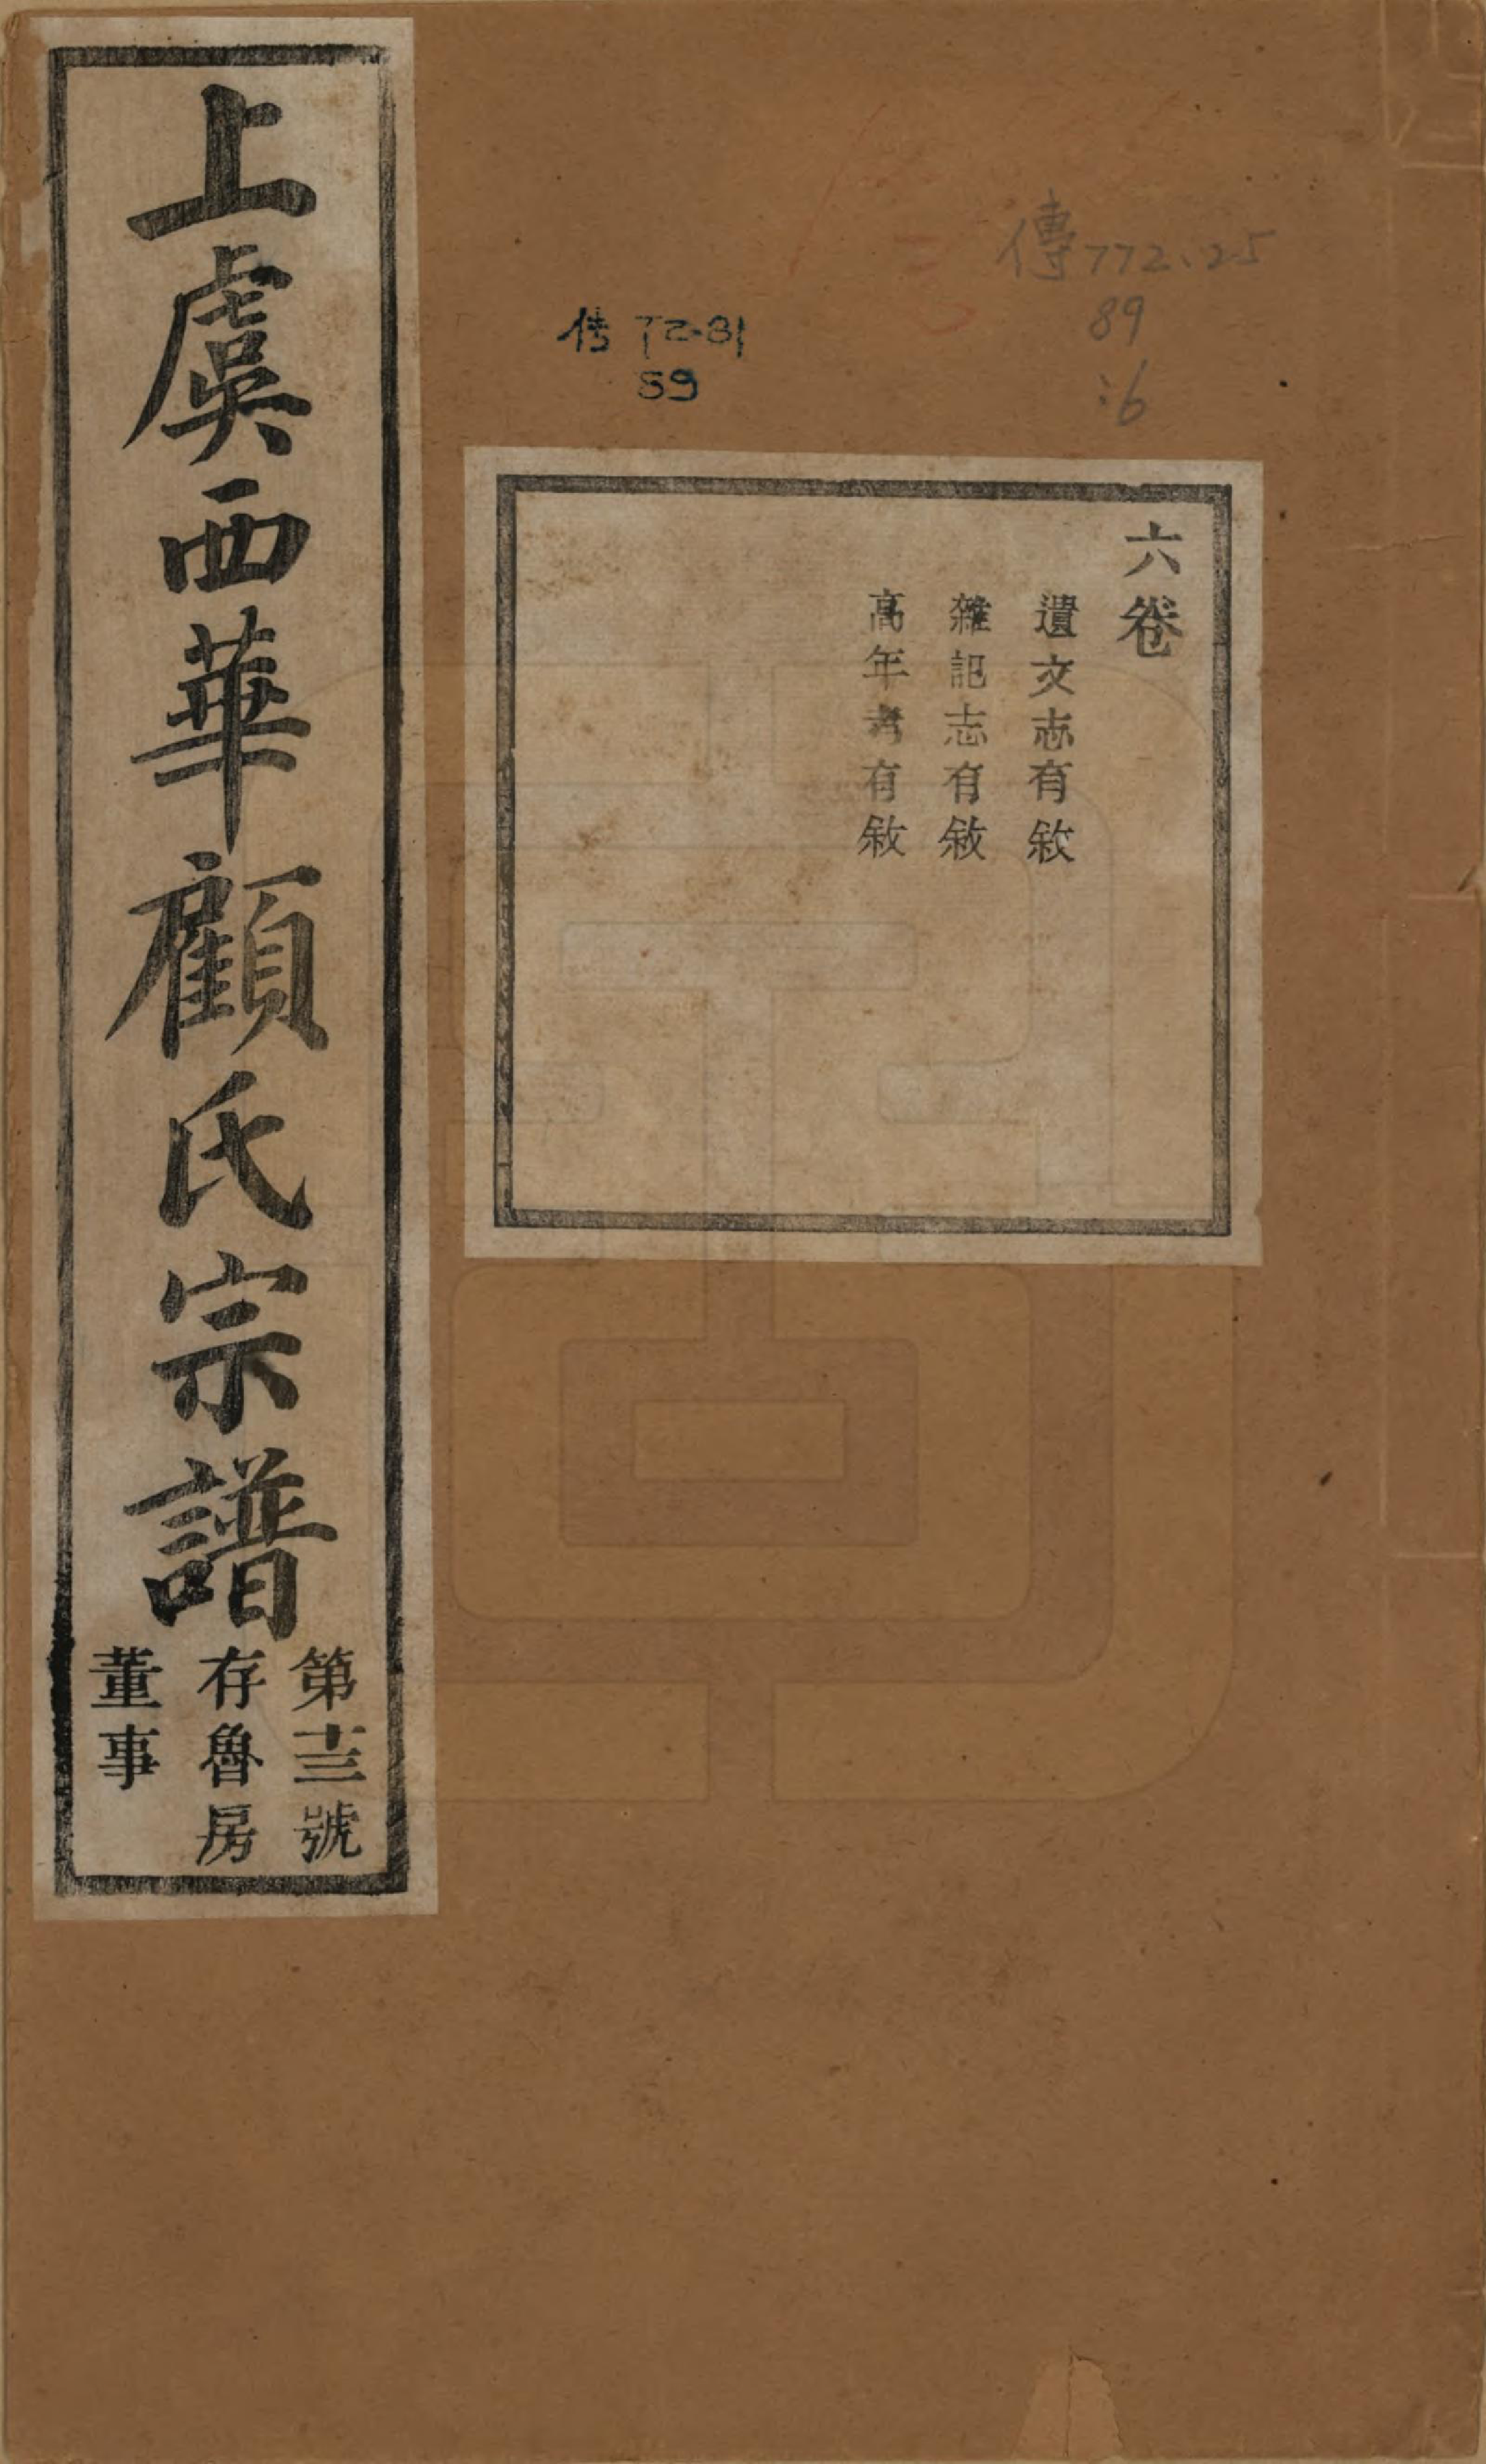 傳772.25
89
:6
传 72.81
89
六卷
遺文志有敘
雜記志有敘
高年考有敘
上虞西華顧氏宗譜
第十三號
存魯房
董事